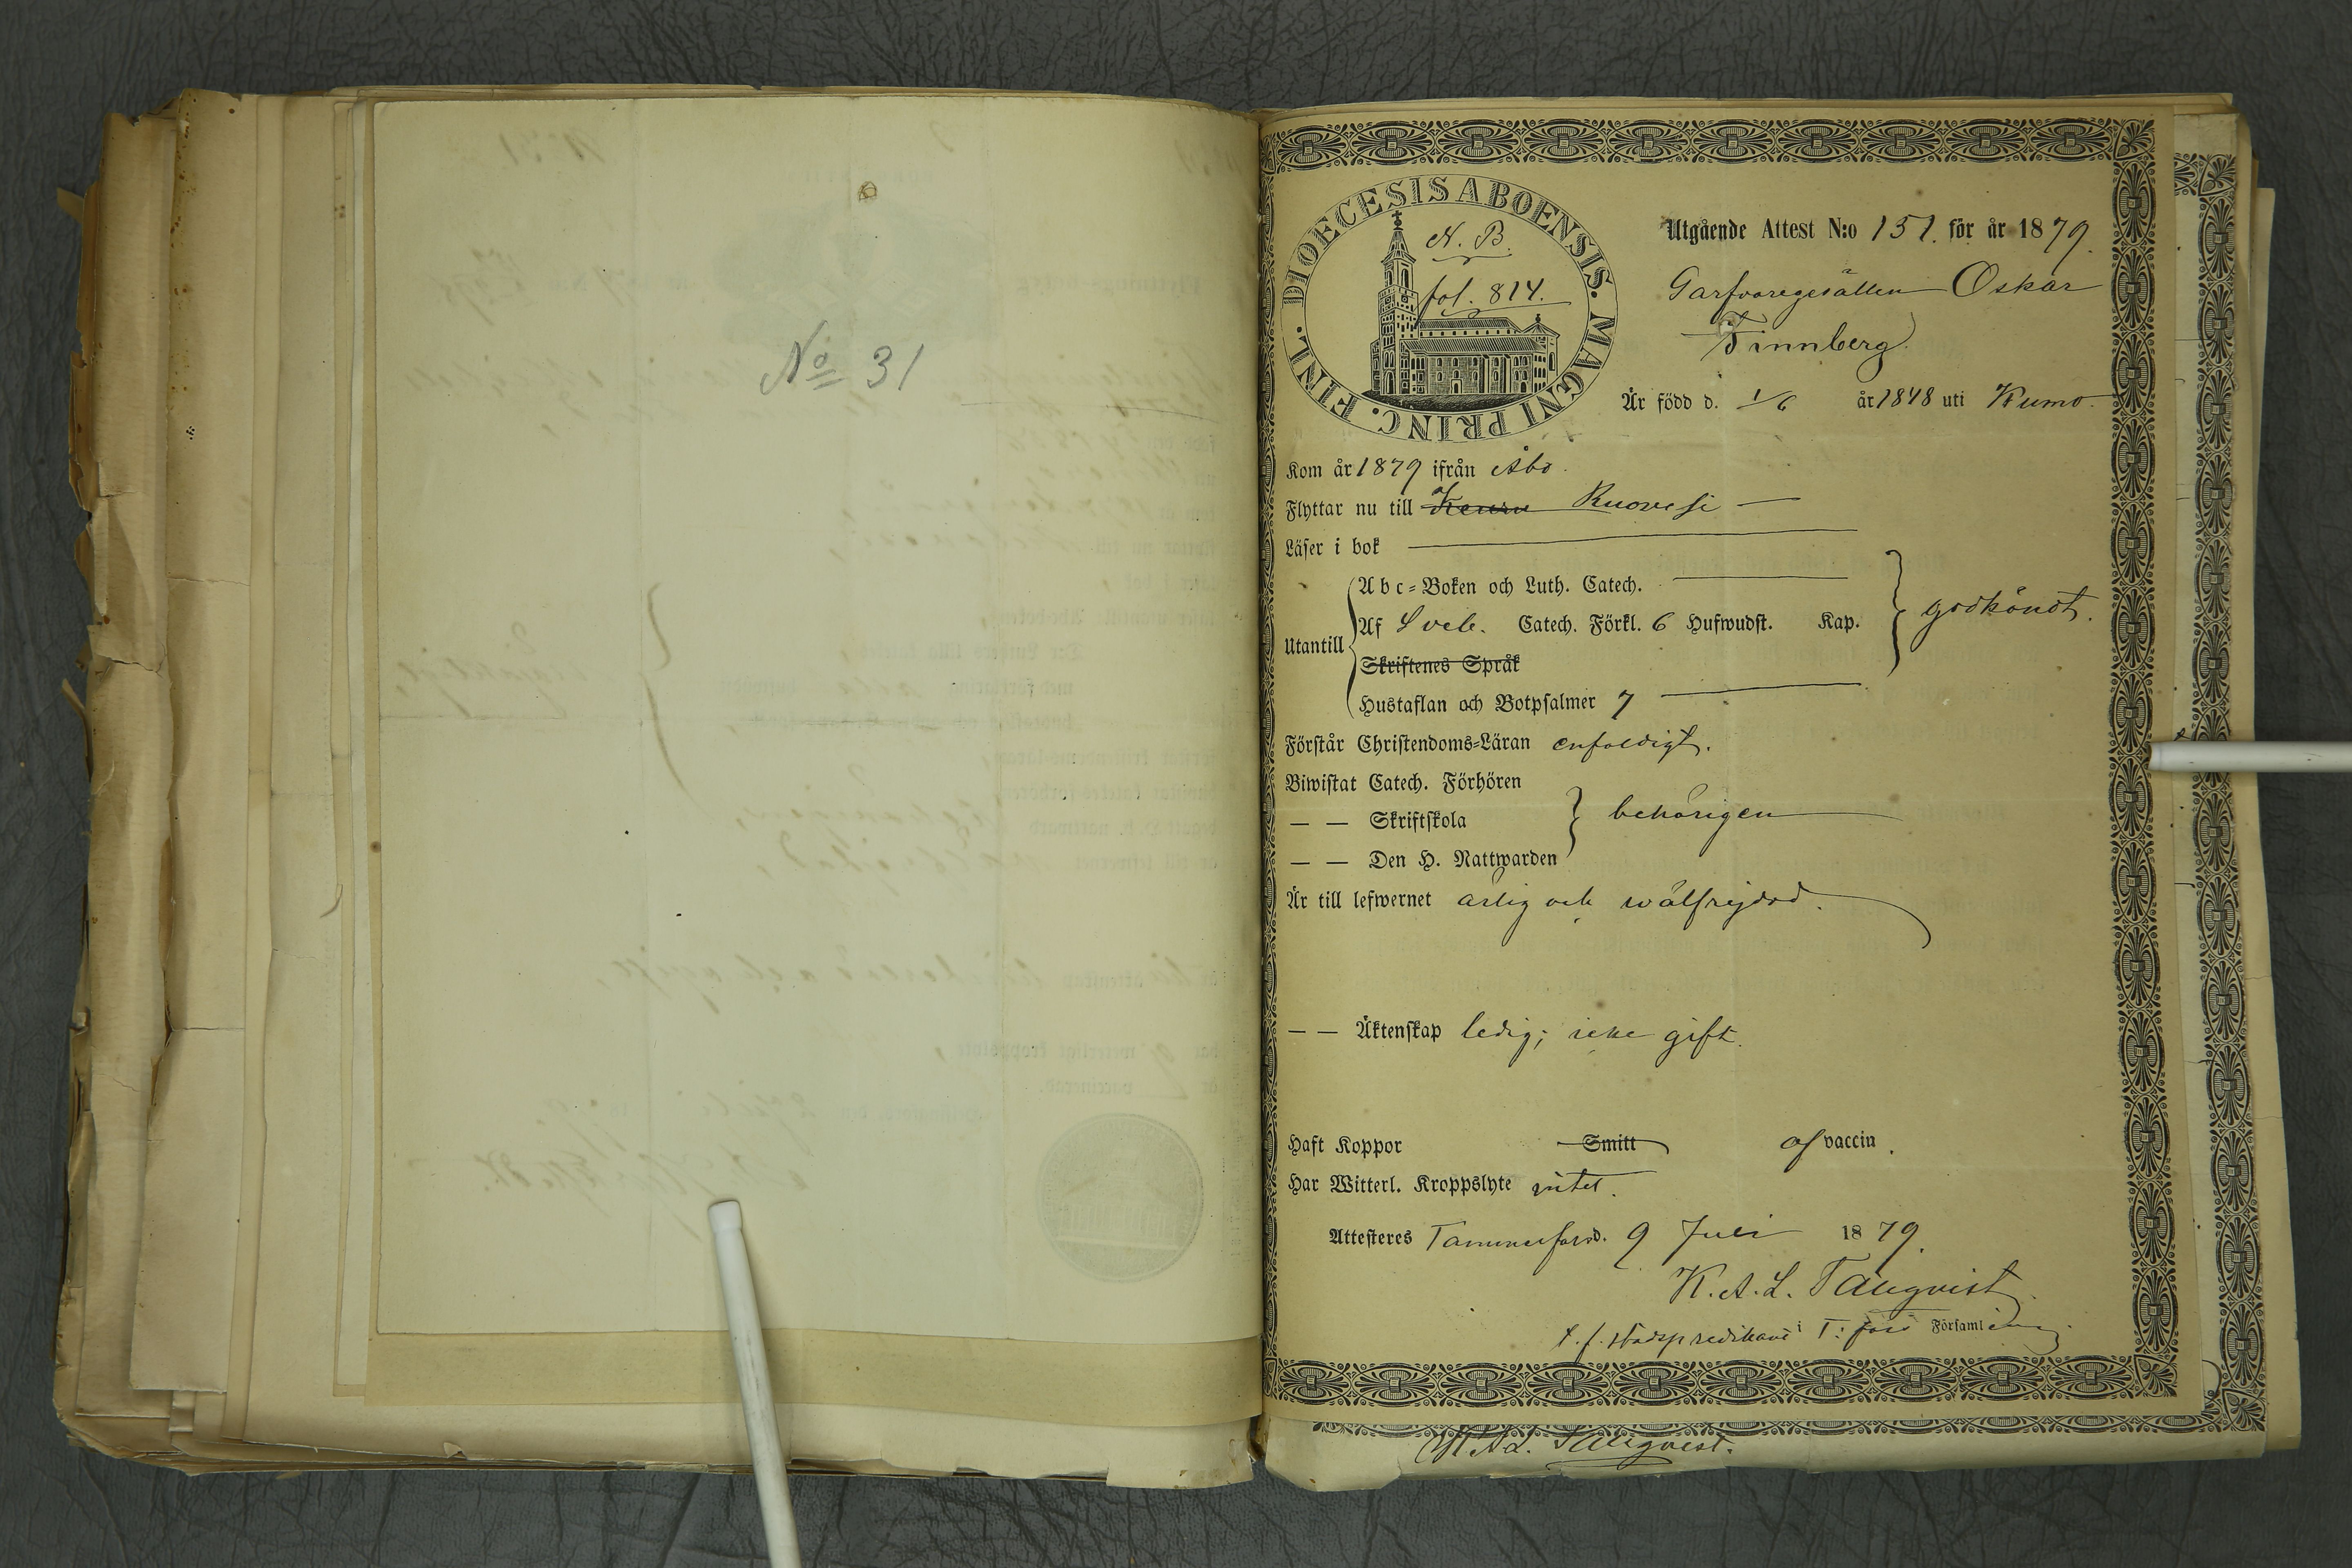 No 31
DIOECESIS ABOENSIS. MAGNI PRINC. FINL.
N. B.
fol. 814.
Utgående Attest N:o 151. för år 1879.
Garfvaregesällen Oskar
Finnberg
Är född d. 1/6 år 1848 uti Kumo.
Kom år 1879 ifrån Åbo.
Flyttar nu till Keuru Ruovesi
Läser i bok
Utantill
Abc=Boken och Luth. Catech.
Af Sveb. Catech. Förkl. 6 Hufwudst. Kap.
godkändt.
Skriftenes Språk
Hustaflan och Botpsalmer 7
Förstår Christendoms=Läran enfaldigt.
Biwistat Catech. Förhören
— — Skriftskola
behörigen
— — Den H. Nattwarden
Är till lefwernet ärlig och wälfrejdad.
— — Äktenskap ledig; icke gift.
Haft Koppor Smitt af vaccin.
Har Witterl. Kroppslyte intet.
Attesteres Tammerfors d. 9 Juli 1879.
K. A. L. Tallqvist
t. f. stadspredikant i T:fors Församling
K. A. L. Tallqvist.